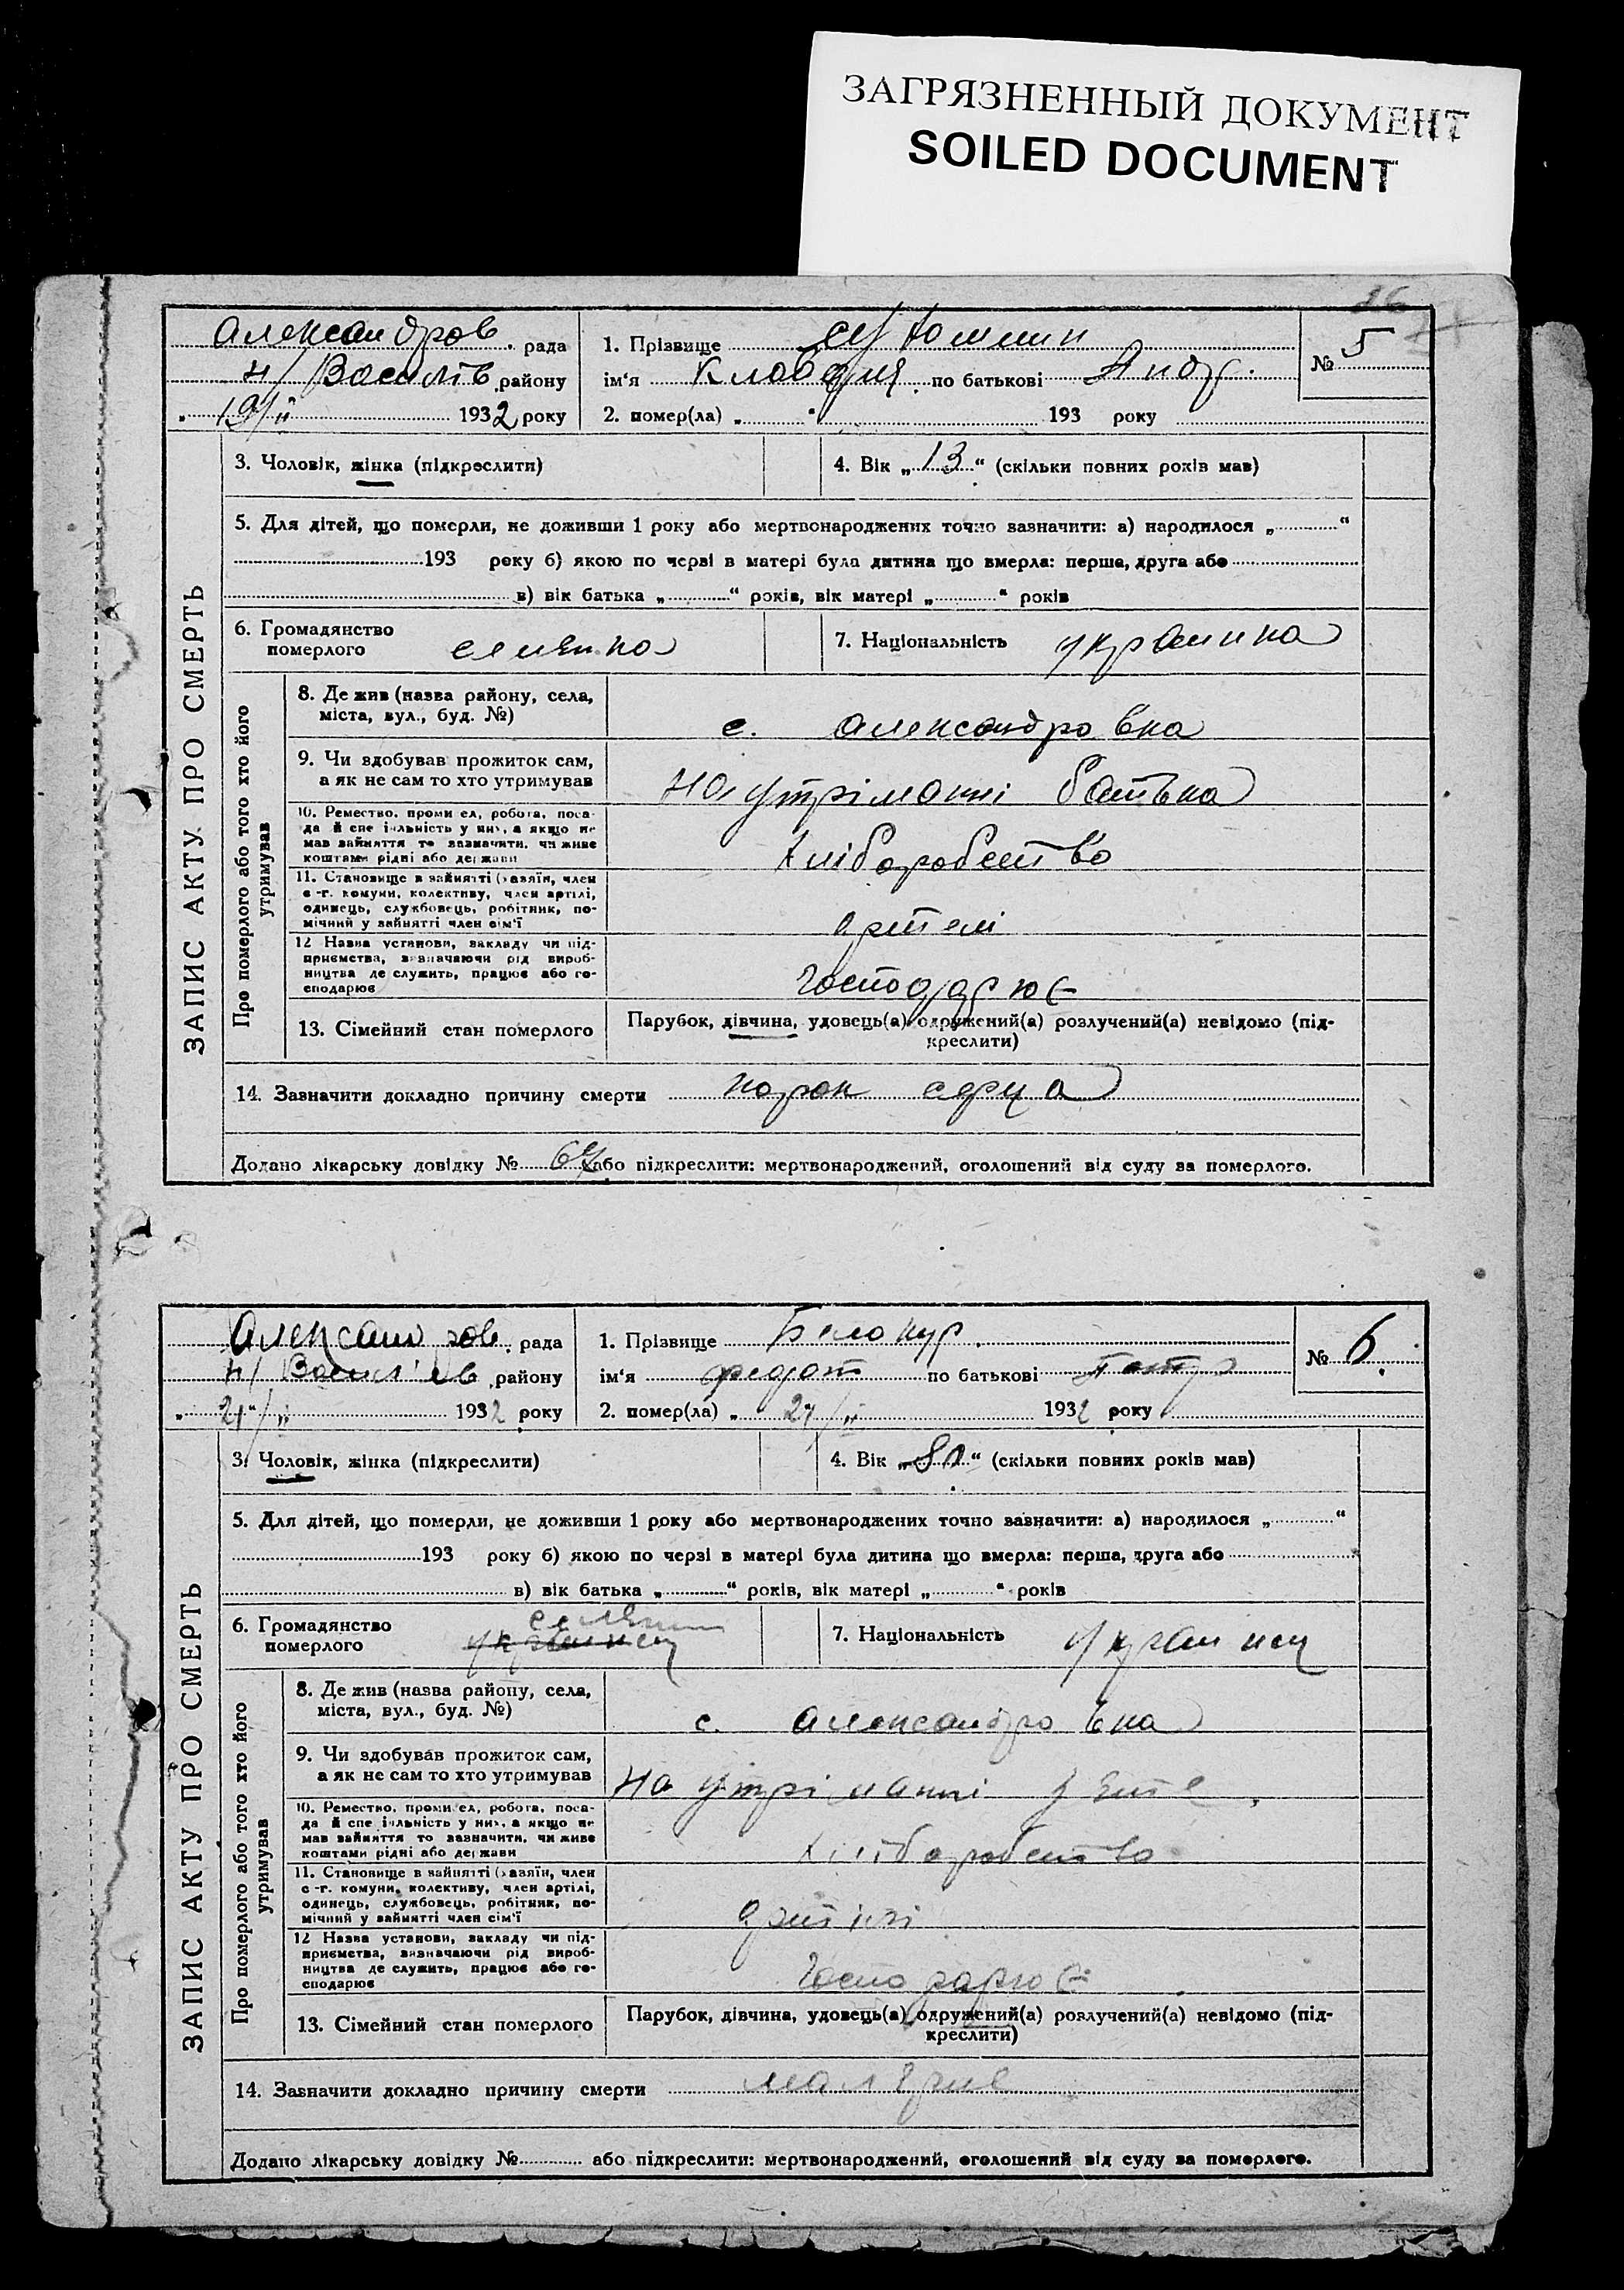 ЗАГРЯЗНЕННЫЙ ДОКУМЕНТ
SOILED DOCUMENT
Александров. рада
Н/Василів району
19/II 1932 року
1. Прізвище
ім'я Клавдия по батькові Андр.
2. помер(ла) „ “ 193 року
№ 5
3. Чоловік, жінка (підкреслити)
4. Вік „13“ (скільки повних років мав)
5. Для дітей, що померли, не доживши 1 року або мертвонароджених точно зазначити: а) народилося „ “
193 року б) якою по черві в матері була дитина що вмерла: перша, друга або
в) вік батька „ “ років, вік матері „ “ років
6. Громадянство
померлого
селянка
7. Національність украинка
ЗАПИС АКТУ ПРО СМЕРТЬ
Про померлого або того хто його
утримував
8. Де жив (назва району, села,
міста, вул., буд. №)
с. Александровка
9. Чи здобував прожиток сам,
а як не сам то хто утримував
На утріманні батька
10. Ремество, промисел, робота, поса-
да й спеціяльність у них, а якщо не
мав зайняття то зазначити, чи живе
коштами рідні або держави
Хліборобство
11. Становище в зайнятті (хазяїн, член
с.-г. комуни, колективу, член артілі,
одинець, службовець, робітник, по-
мічний у зайнятті член сім'ї
артелі
12 Назва установи, закладу чи під-
приємства, зазначаючи рід вироб-
ництва де служить, працює або го-
сподарює
Господарює
13. Сімейний стан померлого
Парубок, дівчина, удовець(а) одружений(а) розлучений(а) невідомо (під-
креслити)
14. Зазначити докладно причину смерти порок серца
Додано лікарську довідку № або підкреслити: мертвонароджений, оголошений від суду за померлого.
Александров. рада
Н/Василів району
21/II 1932 року
1. Прізвище Белокур.
ім'я Федот по батькові Петр
2. помер(ла) „ 21/II 1932 року
№ 6.
3. Чоловік, жінка (підкреслити)
4. Вік „80“ (скільки повних років мав)
5. Для дітей, що померли, не доживши 1 року або мертвонароджених точно зазначити: а) народилося „ “
193 року б) якою по черзі в матері була дитина що вмерла: перша, друга або
в) вік батька „ “ років, вік матері „ “ років
6. Громадянство
померлого
селянин
украинец
7. Національність украинец
ЗАПИС АКТУ ПРО СМЕРТЬ
Про померлого або того хто його
утримував
8. Де жив (назва району, села,
міста, вул., буд. №)
с. Александровка
9. Чи здобував прожиток сам,
а як не сам то хто утримував
На утріманні зяте
10. Ремество, промисел, робота, поса-
да й спеціяльність у них, а якщо не
мав зайняття то зазначити, чи живе
коштами рідні або держави
Хліборобство
11. Становище в зайнятті (хазяїн, член
с.-г. комуни, колективу, член артілі,
одинець, службовець, робітник, по-
мічний у зайнятті член сім'ї
артілі
12 Назва установи, закладу чи під-
приємства, зазначаючи рід вироб-
ництва де служить, працює або го-
сподарює
Господарює
13. Сімейний стан померлого
Парубок, дівчина, удовець(а) одружений(а) розлучений(а) невідомо (під-
креслити)
14. Зазначити докладно причину смерти
Додано лікарську довідку № або підкреслити: мертвонароджений, оголошений від суду за померлого.